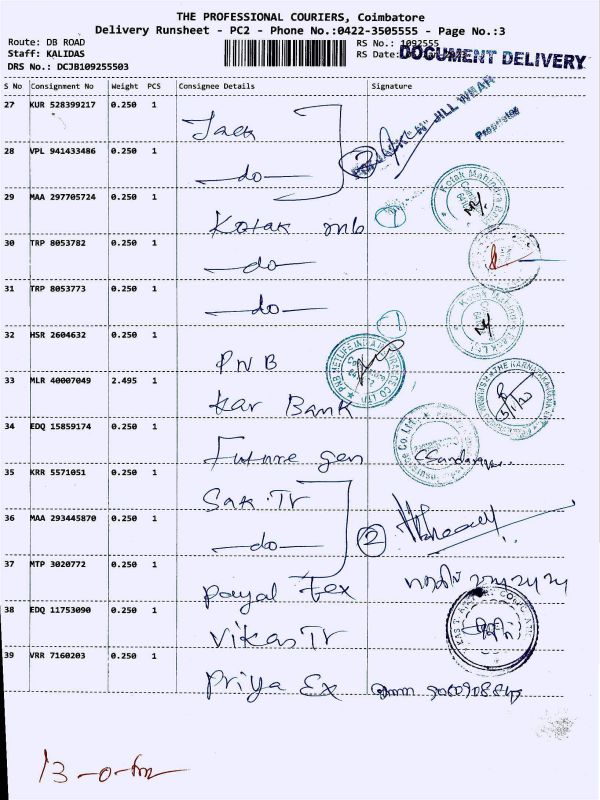 THE PROFESSIONAL COURIERS, Coimbatore
Delivery Runsheet - PC2 - Phone No.:0422-3505555 - Page No.:3
Route: DB ROAD
Staff: KALIDAS
DRS No.: DCJB109255503
RS No.: 1092555
RS Date:
DOCUMENT DELIVERY
S No Consignment No Weight PCS Consignee Details Signature
27 KUR 528399217 0.250 1 Jack
JILL WEAR
Proprietor
28 VPL 941433486 0.250 1 -do- 2
29 MAA 297705724 0.250 1 Kotak mb 1
Kotak Mahindra
30 TRP 8053782 0.250 1 -do-
31 TRP 8053773 0.250 1 -do- 1
Kotak Mahindra
32 HSR 2604632 0.250 1 PNB
PNB METLIFE INDIA INSURANCE CO LTD
33 MLR 40007049 2.495 1 Kar Bank
THE KARNATAKA
34 EDQ 15859174 0.250 1 Future gen
35 KRR 5571051 0.250 1 Sak. Tr
36 MAA 293445870 0.250 1 -do- 2
37 MTP 3020772 0.250 1 Payal Tex
38 EDQ 11753090 0.250 1 Vikas Tr
39 VRR 7160203 0.250 1 Priya Ex